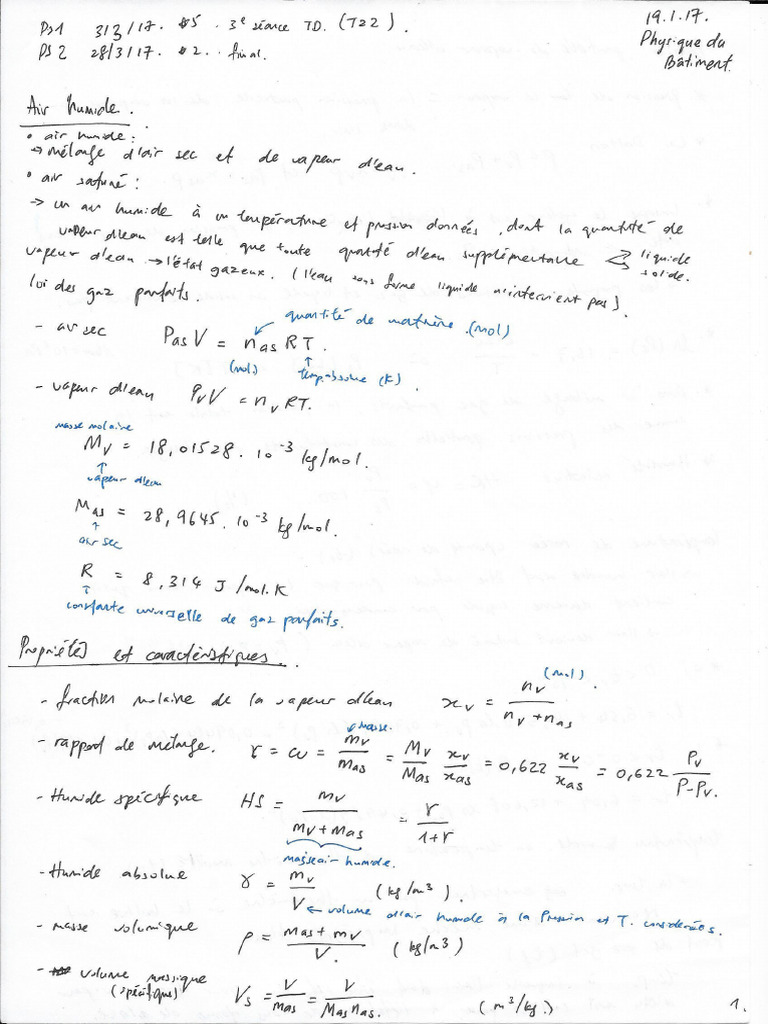 Ps1 3/3/17. #5. 3e séance TD. (T22).
PS2 28/3/17. #2. final.
19.1.17.
Physique du
Bâtiment.
Air humide.
• air humide :
→ mélange d'air sec et de vapeur d'eau.
• air saturé :
→ un air humide à un température et pression données, dont la quantité de
vapeur d'eau est telle que toute quantité d'eau supplémentaire < liquide
solide.
vapeur d'eau → l'état gazeux. (l'eau sous forme liquide n'intervient pas).
loi des gaz parfaits.
quantité de matière (mol)
- air sec Pas V = nas RT.
(mol) temp. absolue (K)
- vapeur d'eau PvV = nv RT.
masse molaire
Mv = 18,01528. 10⁻³ kg/mol.
vapeur d'eau
Mas = 28,9645. 10⁻³ kg/mol.
air sec
R = 8,314 J/mol.K
constante universelle de gaz parfaits.
Propriétés et caractéristiques.
- fraction molaire de la vapeur d'eau xv = nv / (nv + nas) (mol).
- rapport de mélange. r = ω = mv / mas = Mv/Mas xv/xas = 0,622 xv/xas = 0,622 Pv/(P-Pv).
masse.
- Humide spécifique HS = mv / (mv + mas) = r / (1+r)
masse air humide.
- Humide absolue γ = mv / V (kg/m³).
← volume d'air humide à la Pression et T. considérées.
- masse volumique ρ = (mas + mv) / V. (kg/m3)
- volume massique Vs = V/mas = V/(Mas nas). (m³/kg.)
(spécifiques)
1.